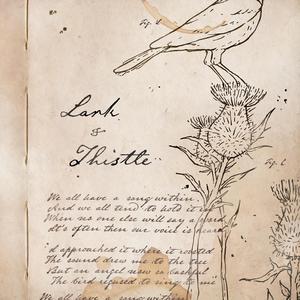 fig. a
Lark
&
Thistle
fig. b
We all have a song within
And we all tend to hold it in
When no one else will say a word
It's often then our voice is heard
I'd approached it where it roosted
The sound drew me to the tree
But an angel now so bashful
The bird refused to sing to me"
We all have a song within